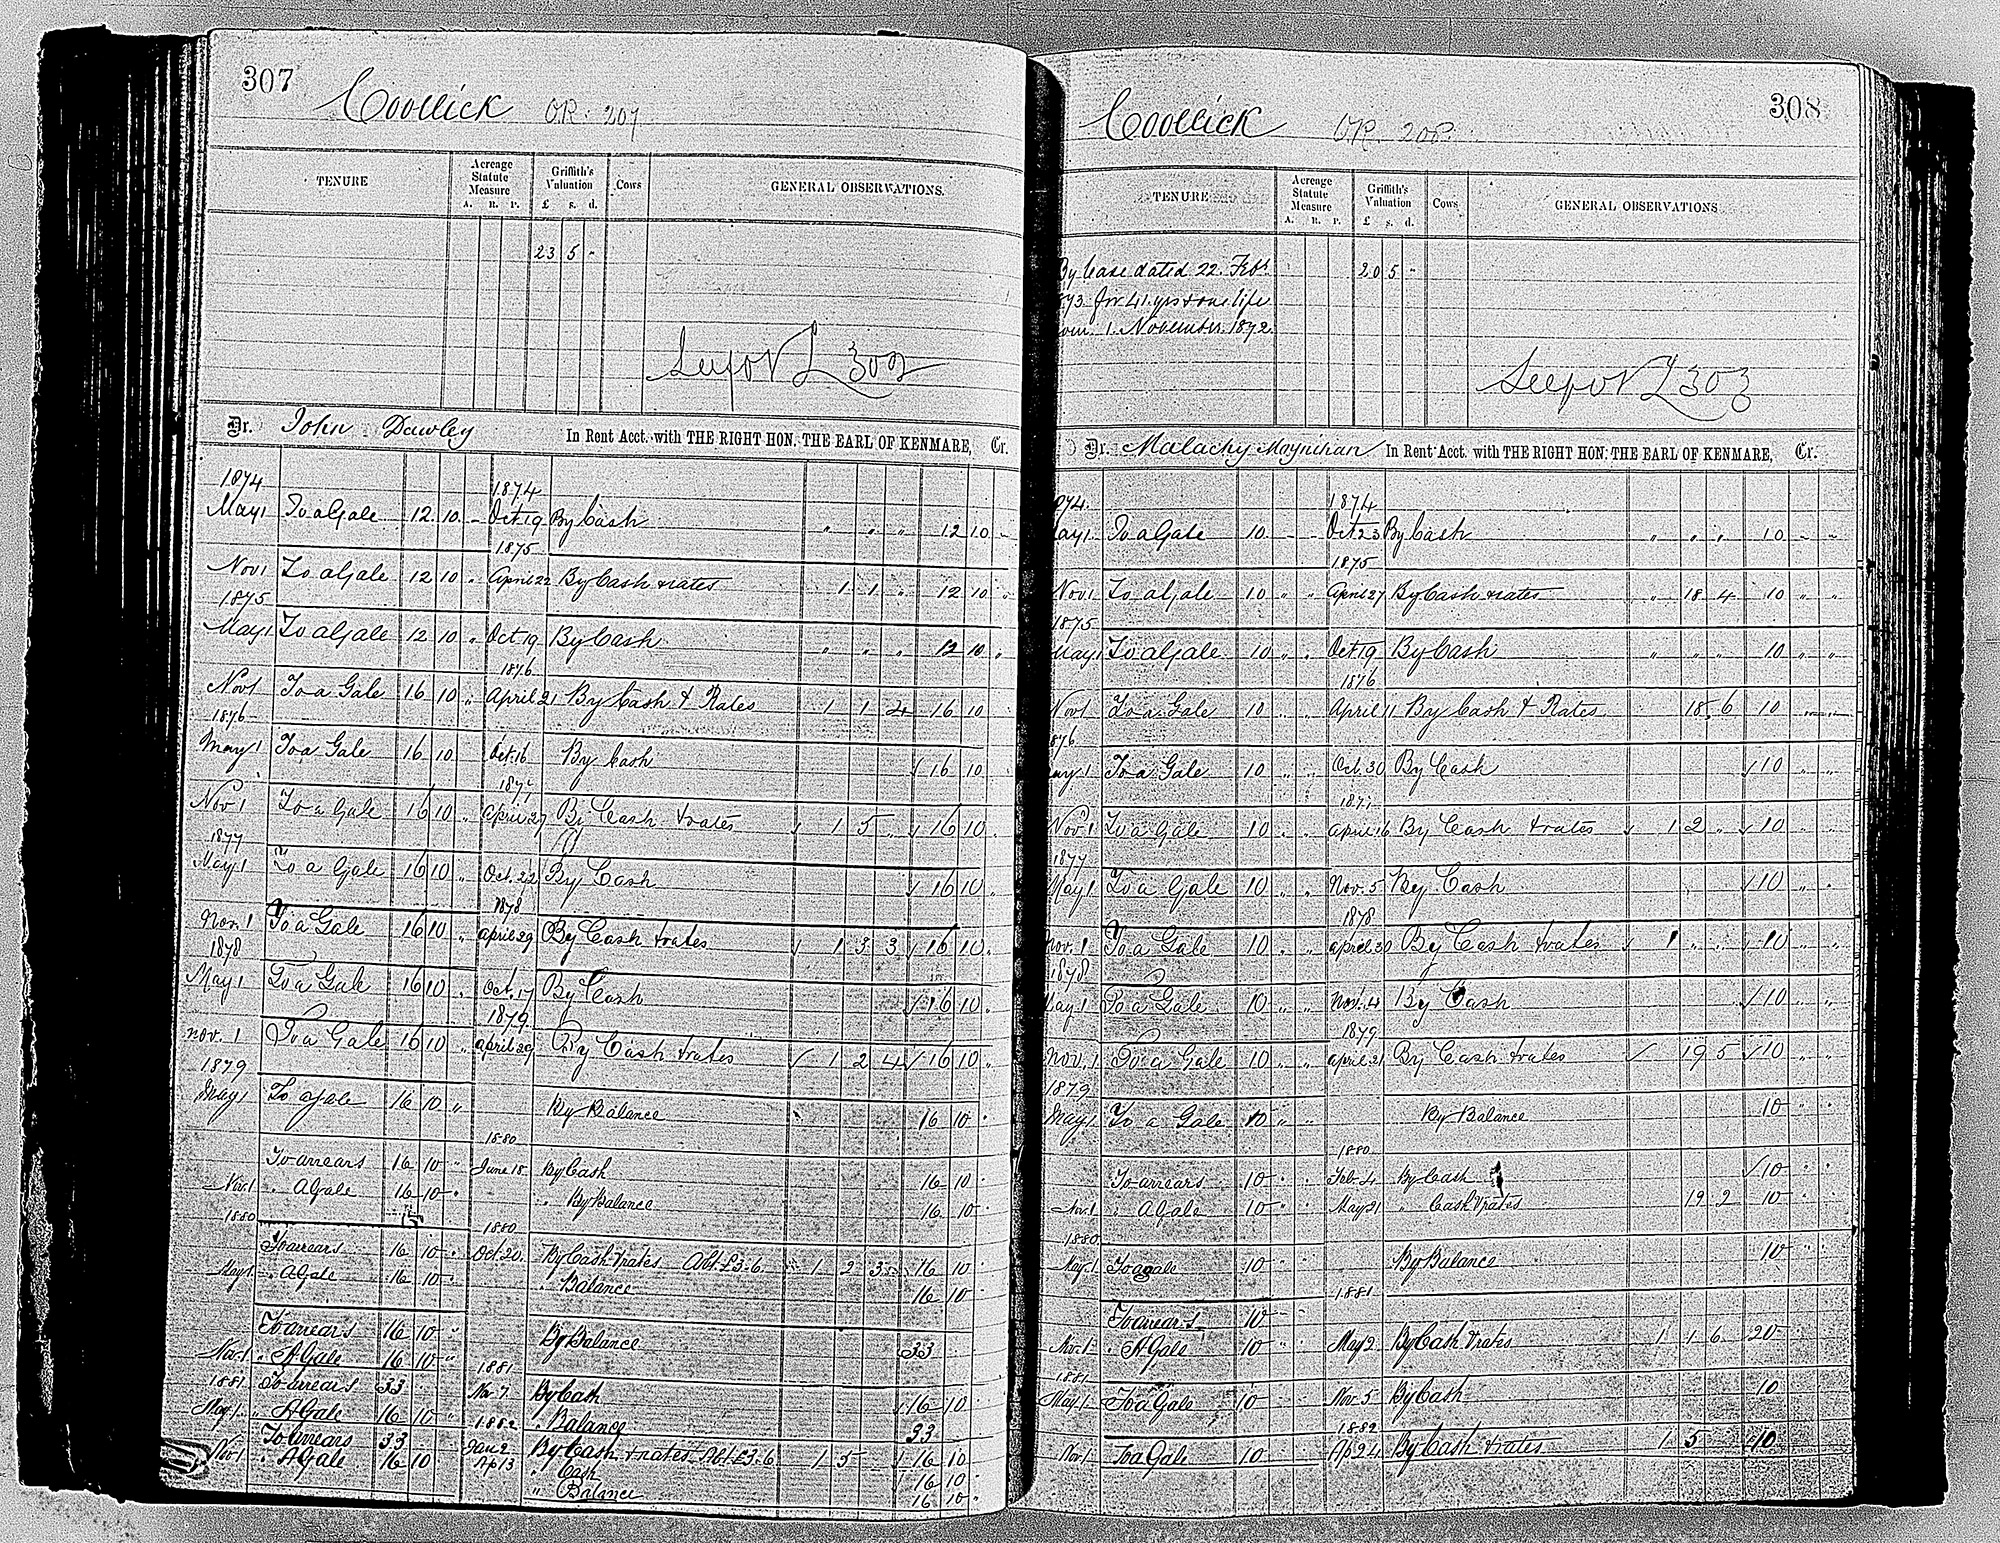 307
Coollick OR. 207
TENURE
Acreage Statute Measure
A. R. P.
Griffith's Valuation
£ s. d.
Cows
GENERAL OBSERVATIONS.
23 5 "
See for L 302
Dr. John Dawley In Rent Acct. with THE RIGHT HON. THE EARL OF KENMARE, Cr.
1874 1874
May 1 To a Gale 12 10 - Oct 19 By Cash " " " 12 10 -
1875
Nov 1 To a Gale 12 10 " April 22 By Cash & rates 1 1 " 12 10 "
1875
May 1 To a Gale 12 10 " Oct 19 By Cash " " " 12 10 "
1876
Nov 1 To a Gale 16 10 " April 21 By Cash & Rates 1 1 4 16 10
1876
May 1 To a Gale 16 10 Oct. 16 By Cash √ 16 10
1877
Nov 1 To a Gale 16 10 " April 27 By Cash & rates √ 1 5 " √ 16 10 "
1877
May 1 To a Gale 16 10 " Oct. 22 By Cash √ 16 10 "
1878
Nov. 1 To a Gale 16 10 " April 29 By Cash & rates √ 1 3 3 √ 16 10 "
1878
May 1 To a Gale 16 10 " Oct. 17 By Cash √ 16 10 "
1879
Nov. 1 To a Gale 16 10 " April 29 By Cash & rates √ 1 2 4 √ 16 10 "
1879
May 1 To a Gale 16 10 " By Balance 16 10 "
1880
To arrears 16 10 " June 18 By Cash 16 10 "
Nov. 1 " A Gale 16 10 " " By Balance 16 10 "
1880 15 1880
To arrears 16 10 " Oct. 20. By Cash & rates Abt £3.6 1 2 3 16 10 "
May 1 " A Gale 16 10 " " Balance 16 10 "
To arrears 16 10 " By Balance 33
Nov. 1 " A Gale 16 10 " 1881
1881 To arrears 33 Nov 7 By Cash √ 16 10
May 1 " A Gale 16 10 " 1882 " Balance 33
To arrears 33 Jan 2 By Cash & rates Abt £3.6 1 5 √ 16 10
Nov 1 " A Gale 16 10 Ap 13 " Cash 16 10
" Balance 16 10 "
308
Coollick OR. 208
TENURE
Acreage Statute Measure
A. R. P.
Griffith's Valuation
£ s. d.
Cows
GENERAL OBSERVATIONS
By lease dated 22. Feby 20 5 "
1873 for 41 yrs & one life
from 1. November. 1872.
See for L 303
Dr. Malachy Moynihan In Rent Acct. with THE RIGHT HON: THE EARL OF KENMARE, Cr.
1874. 1874
May 1. To a Gale 10 - - Oct 23 By Cash " " " 10 - "
1875
Nov. 1 To a Gale 10 " " April 27 By Cash & rates " 18 4 10 " "
1875
May 1 To a Gale 10 " " Oct 19 By Cash " " " 10 " "
1876
Nov 1 To a Gale 10 " " April 11 By Cash & Rates 18 6 10 " "
1876
May 1 To a Gale 10 " " Oct. 30 By Cash √ 10 " "
1877
Nov. 1 To a Gale 10 " " April 16 By Cash & rates √ 1 2 " √ 10 " "
1877
May 1 To a Gale 10 " " Nov. 5 By Cash √ 10 " "
1878
Nov. 1 To a Gale 10 " " April 30 By Cash & rates √ 1 " " √ 10 " "
1878
May 1 To a Gale 10 " " Nov. 4 By Cash √ 10 " "
1879
Nov. 1 To a Gale 10 " " April 21 By Cash & rates √ 19 5 √ 10 " "
1879
May 1 To a Gale 10 " " By Balance 10 " "
1880
To arrears 10 " " Feb. 4 By Cash √ 10 " "
Nov. 1 " A Gale 10 " " May 21 " Cash & rates 19 2 10 "
1880
May 1 To a gale 10 " By Balance 10 "
1881
To arrears 10 " "
Nov. 1 " A Gale 10 " May 2 By Cash & rates 1 1 6 20
1881
May 1 To a Gale 10 Nov. 5 By Cash 10
1882
Nov 1 To a Gale 10 Ap 24 By Cash & rates 1 5 √ 10